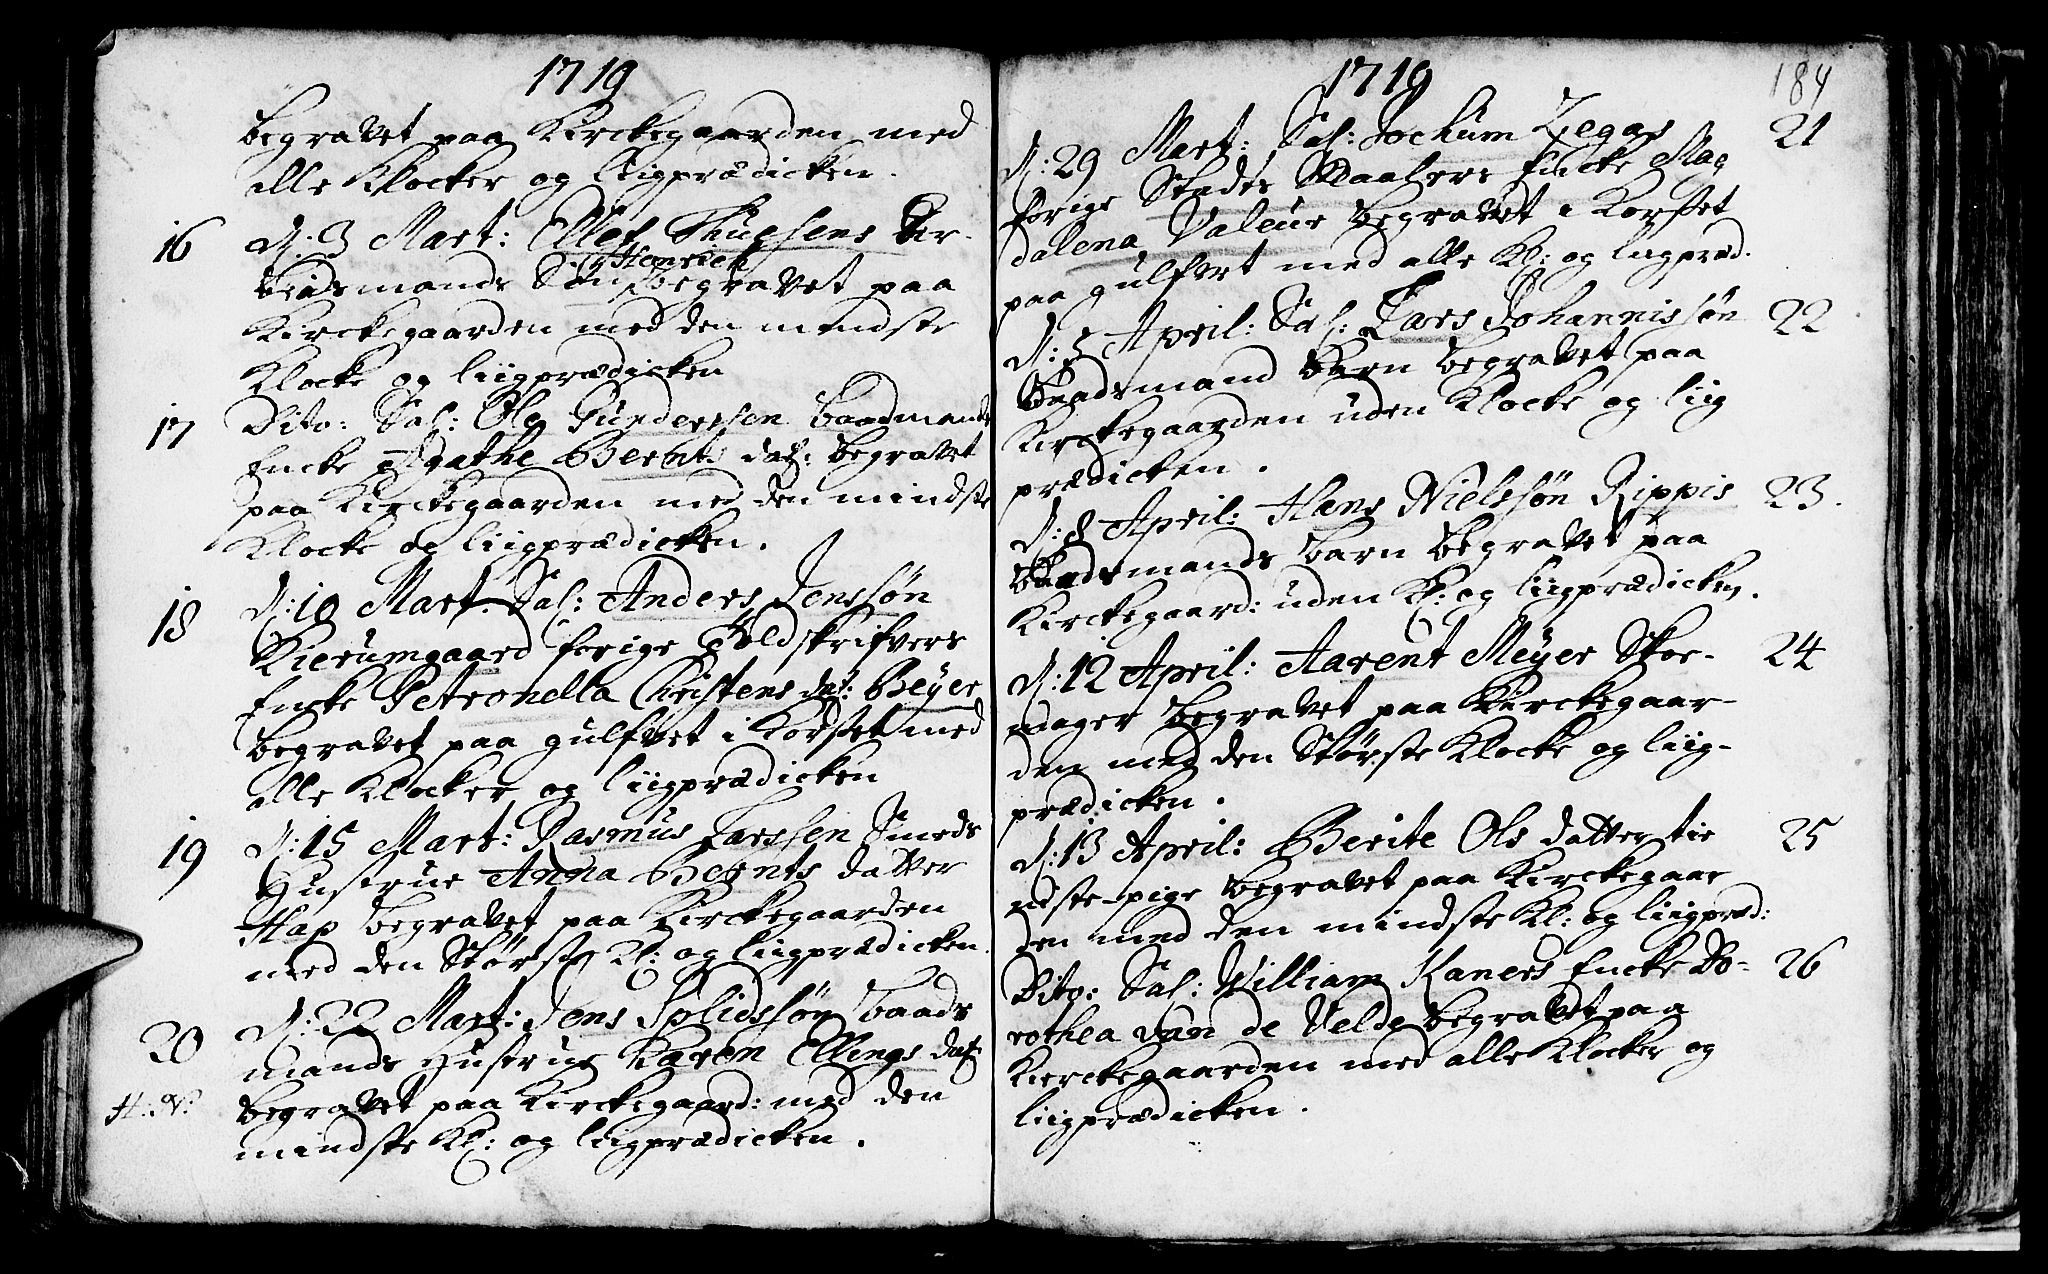 1719
begravet paa Kirckegaarden med
alle Klocker og liigprædicken.
16 d: 3 Mart: Ellef Thuesens Ar-
Henrich
beidsmands Søn begravet paa
Kirckegaarden med den mindste
Klocke og liigprædicken
17 Dito: Sal: Ole Gunderssen Baadmands
Encke Agathe Bernt dat: begravet
paa Kirckegaarden med den mindste
Klocke og liigprædicken.
18 d: 10 Mart. Sal: Anders Jenssøn
Kierumgaard forige Toldskrifvers
Encke Petronella Christens dat: Beyer
begravet paa gulfvet i Korsset med
alle Klocker og liigprædicken
19 d: 15 Mart: Rasmus Larssen Smeds
Hustrue Anna Bernts datter
Hap begravet paa Kirckegaarden
med den Største Kl: og liigprædicken.
20 d: 22 Mart: Jens Solidssøn Baads
mands Hustrue Karen Ellings dat:
H. N: begravet paa Kirckegaard: med den
mindste Kl: og liigprædicken.
1719
184
d: 29 Mart: Sal: Jochum Zegas 21
forige Stads Maalers Encke Mag
dalena Valeur begravet i Korsset
paa gulfvet med alle Kl: og liigpræd.
d: 5 April: Sal: Lars Johannissøn 22
Baadsmand Barn begravet paa
Kirckegaarden uden Klocke og liig
prædicken.
d: 8 April: Hans Nielssøn Rippis 23.
Baadsmands Barn begravet paa
Kirckegaard: uden Kl: og liigprædicken.
d: 12 April: Aarent Meyer Skoe- 24
mager begravet paa Kirckegaar-
den med den Største Klocke og liig-
prædicken.
d: 13 April: Berite Ols datter tie 25
niste-pige begravet paa Kirckegaar
den med den mindste Kl: og liigpræd:
Dito: Sal: William Kaners Encke Do- 26
rothea van de Velde begravet paa
Kierckegaarden med alle Klocker og
liigprædicken.